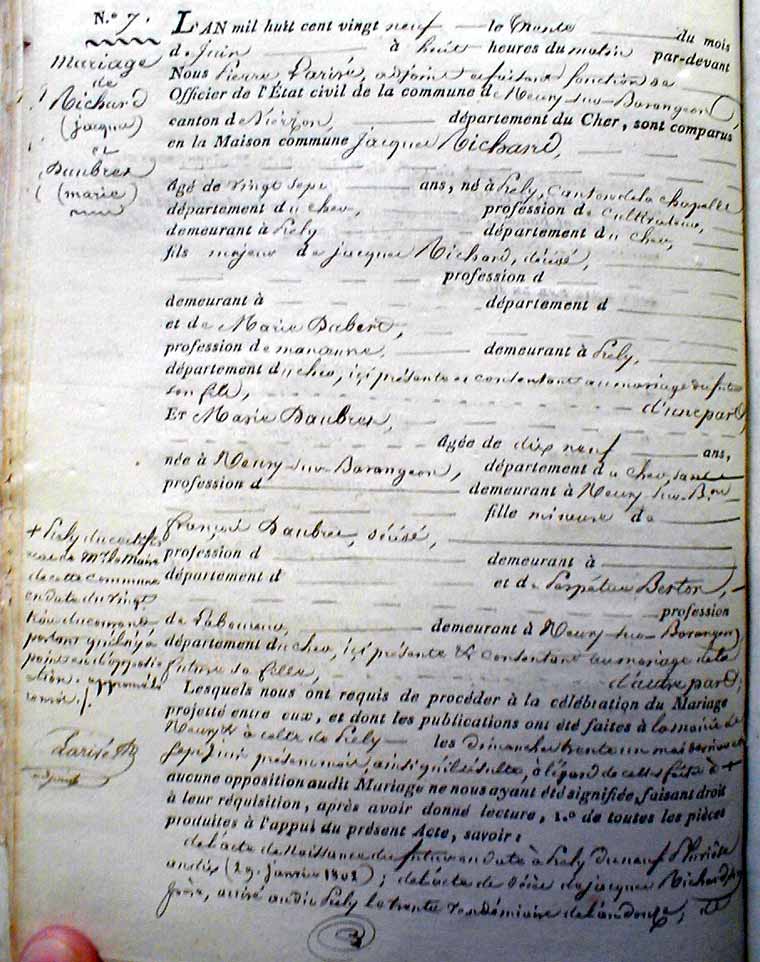 N.º 7.
Mariage
de
Richard
(jacques)
et
Daubres
(marie)
L'AN mil huit cent vingt neuf le trente du mois
de Juin à huit heures du matin par-devant
Nous Pierre Parisé, adjoint et faisant fonction de
Officier de l'État civil de la commune de Neuvy-sur-Barangeon,
canton de Vierzon, département du Cher, sont comparus
en la Maison commune Jacques Richard,
âgé de vingt sept ans, né à Prely, Canton de la Chapelle
département du cher, profession de Cultivateur,
demeurant à Prely département du cher,
fils majeur de jacques Richard, décédé,
profession d
demeurant à département d
et de Marie Dubert,
profession de manœuvre, demeurant à Prely,
département du cher, ici présente et consentant au mariage du futur
son fils, d'une part,
ET Marie Daubres,
âgée de dix neuf ans,
née à Neuvy-sur-Barangeon, département du cher, sans
profession d demeurant à Neuvy-sur-Bon
fille mineure de
françois Daubres, décédé,
profession d demeurant à
département d et de Perpétue Berton,
profession
de Laboureur, demeurant à Neuvy-sur-Barangeon
département du cher, ici présente & consentant au mariage de la
future sa fille, d'autre part;
Lesquels nous ont requis de procéder à la célébration du Mariage
projetté entre eux, et dont les publications ont été faites à la mairie de
Neuvy & à celle de Prely les dimanches trente un mai dernier et
sept juin présent mois, ainsi qu'il résulte, à l'égard de celles faites à +
aucune opposition audit Mariage ne nous ayant été signifiée, faisant droit
à leur réquisition, après avoir donné lecture, 1.º de toutes les pièces
produites à l'appui du présent Acte, savoir:
de l'acte de Naissance du futur en date à Prely du neuf Pluviôse
an dix (29 janvier 1802); de l'acte de décès de jacques Richard, son
père, arrivé audit Prely le trente Vendémiaire de l'an douze; de
+ Prely du certificat
de Mr le Maire
de cette commune
en date du vingt
juin du courant
portant qu'il n'y a
point eu d'opposition.
approuvé le
renvoi.
Parisé
adjoint